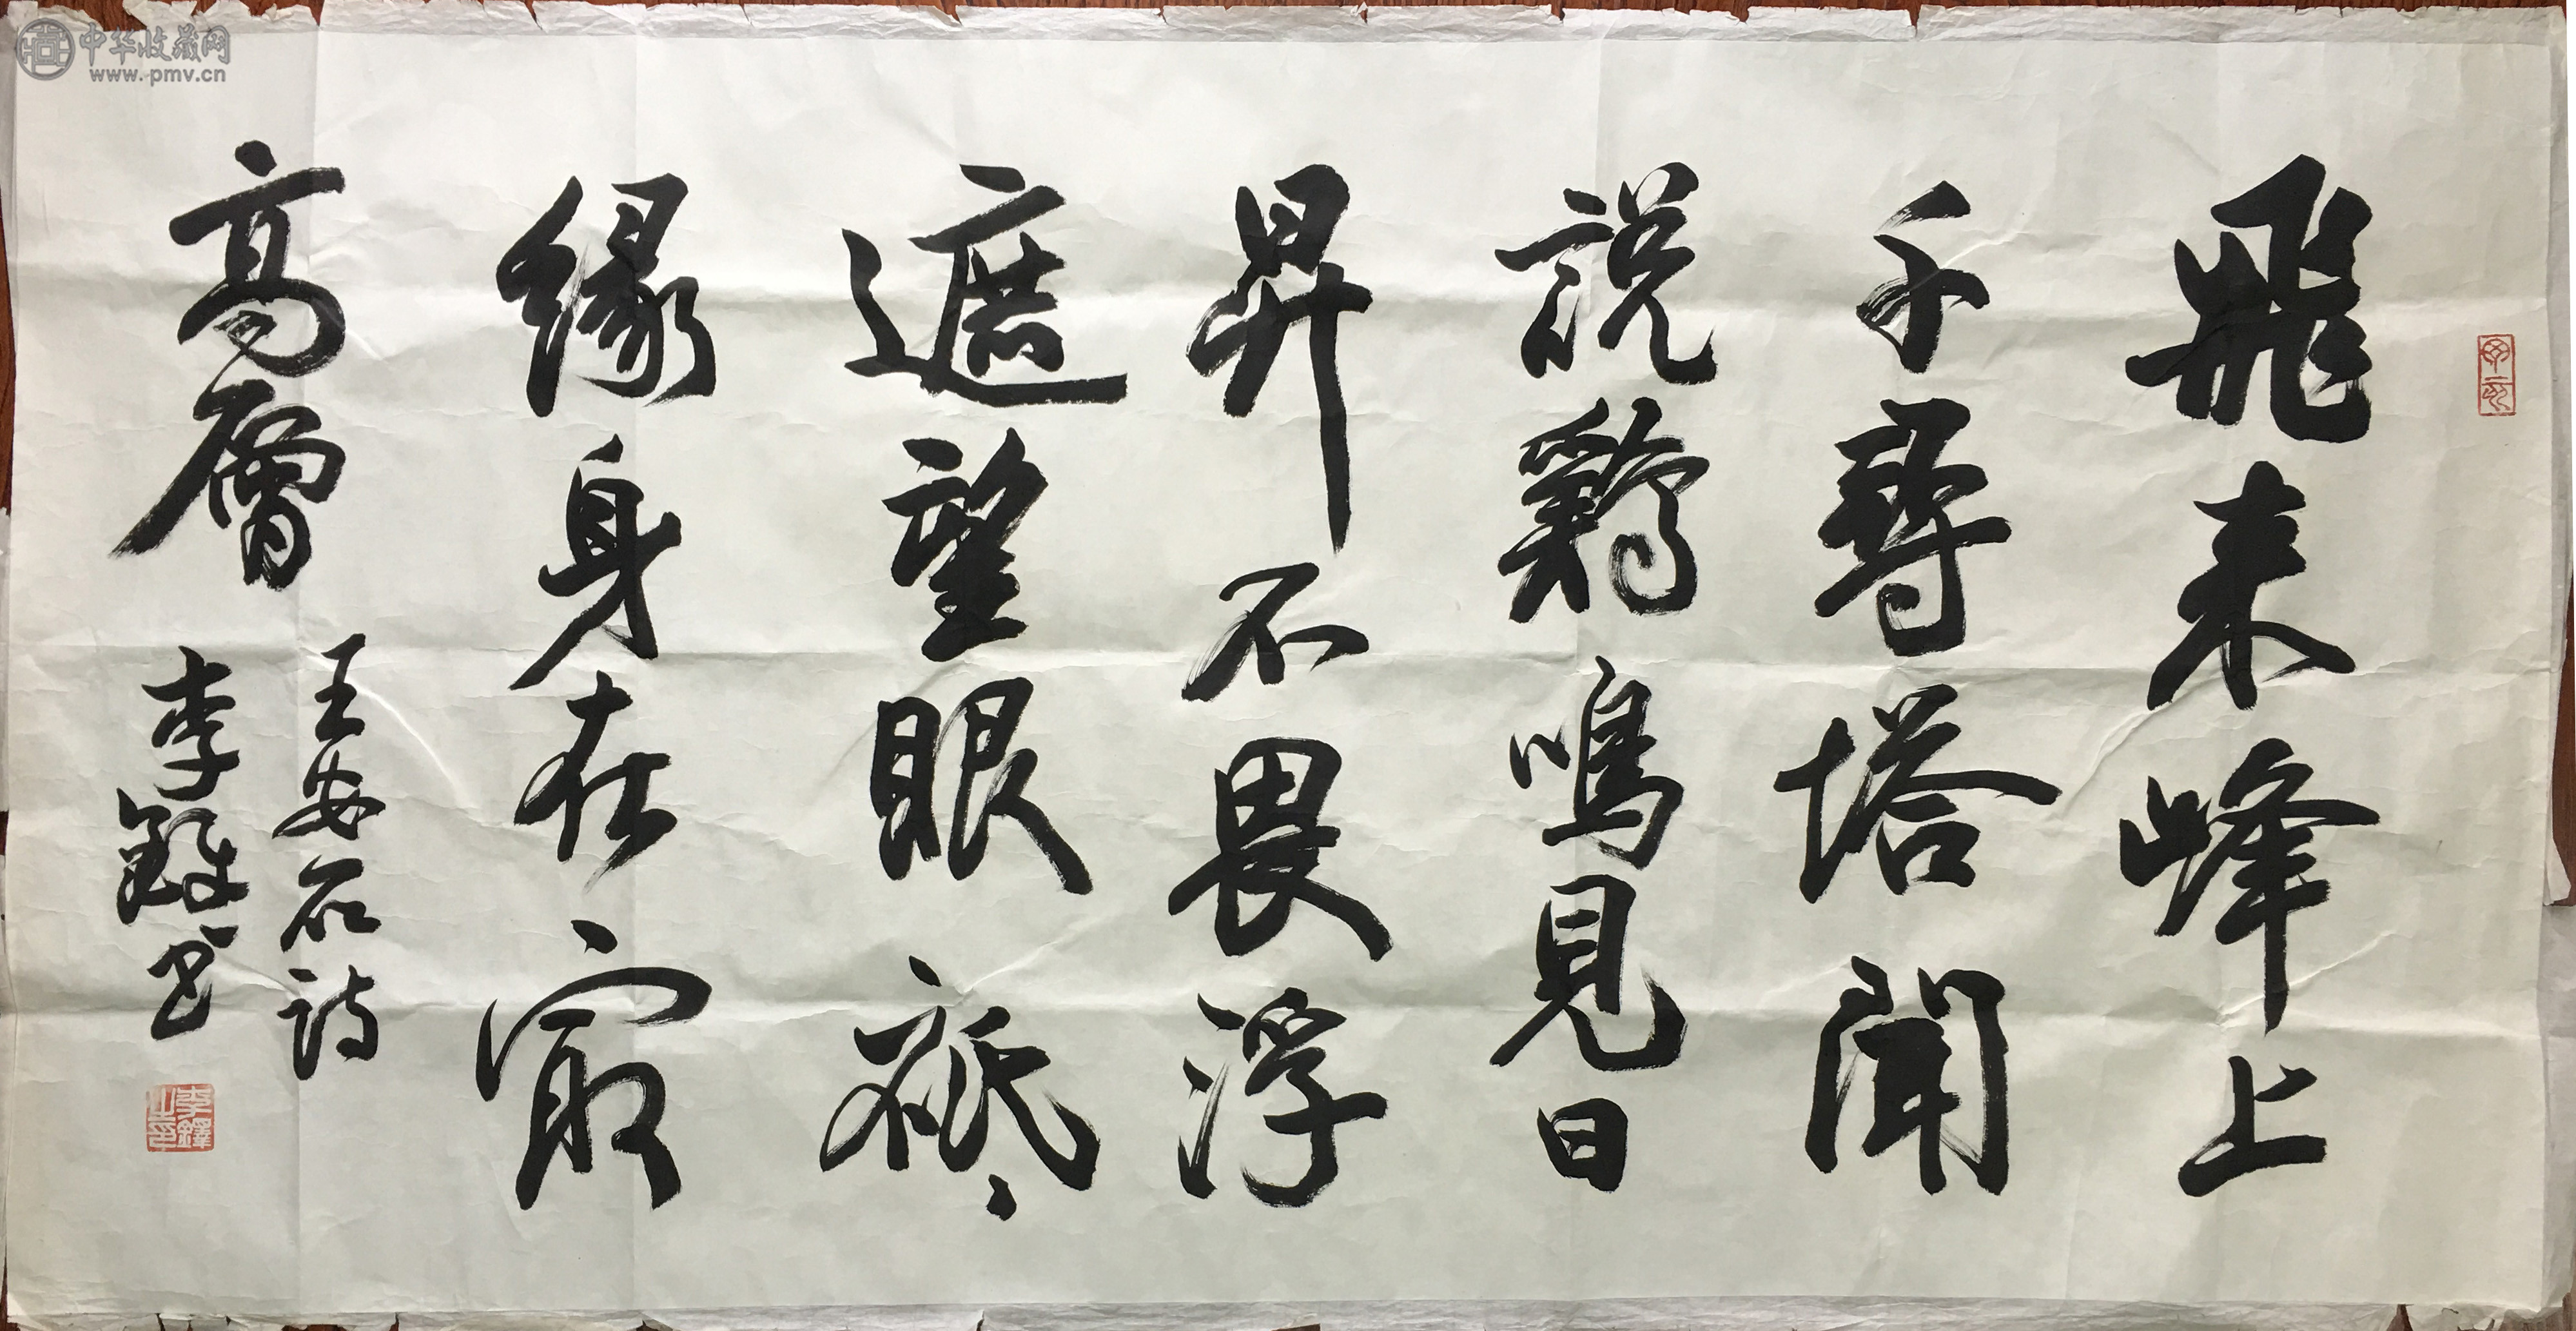 飛来峰上
千尋塔聞
説鷄鳴見日
昇不畏浮
遮望眼祗
緣身在冣
高層
王安石诗
李鐸书
李鐸之印
中华收藏网
www.pmv.cn